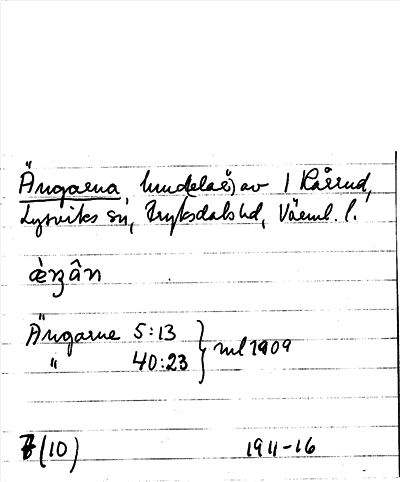 Ängarna, hmdelar) av 1 Kårrud,
Lysviks sn, Fryksdals hd, Värml. l.
æ̀ŋân
Ängarne 5:13
" 40:23 } ml 1909
(10) 1911-16